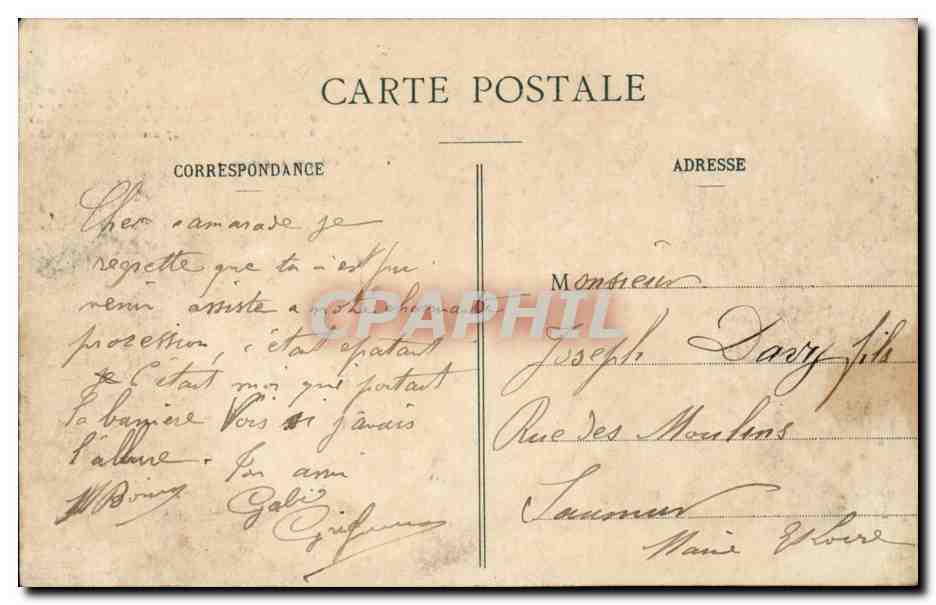 CARTE POSTALE
CORRESPONDANCE
ADRESSE
Cher camarade je
regrette que tu n'est pu
venir assiste a notre charmante
procession, c'était epatant
C'était moi que portait
la banniere Vois si j'avais
l'allure. Ton ami
Gabi
Monsieur
Joseph Davy fils
Rue des Moulins
Saumur
Maine Et Loire
CPAPHIL